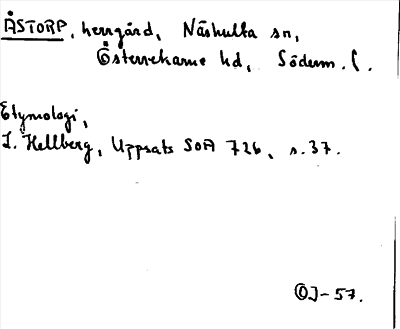 ÅSTORP, herrgård, Näshulta sn,
Österrekarne hd, Söderm. l.
Etymologi,
L. Hellberg, Uppsats SOA 726, s. 37.
OJ-57.